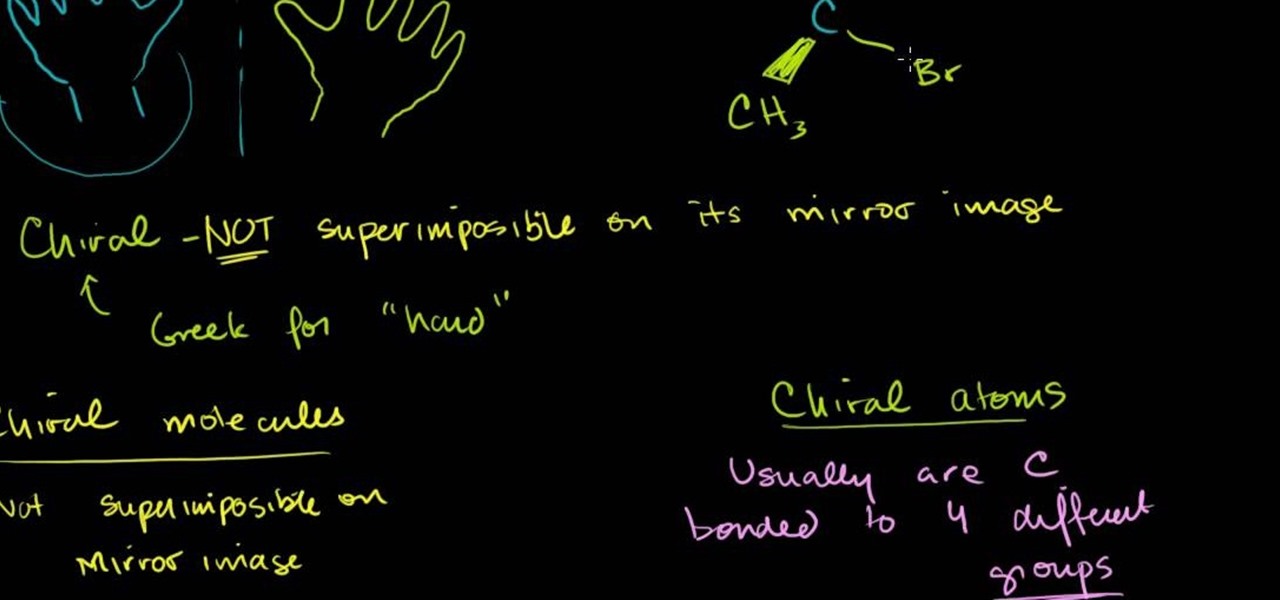 C
Br
CH3
Chiral - NOT superimposible on its mirror image
Greek for "hand"
Chiral molecules
Not superimposible on
Mirror image
Chiral atoms
Usually are C
bonded to 4 different
groups